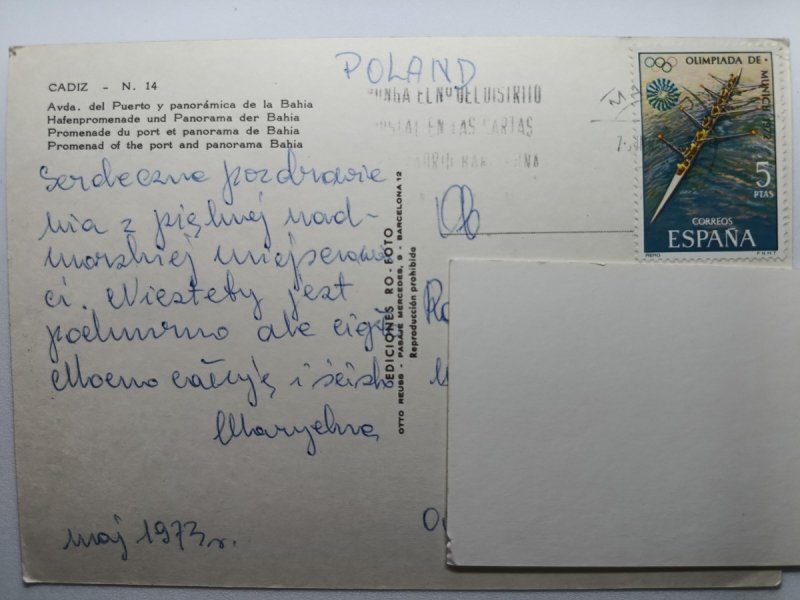 CADIZ - N. 14
Avda. del Puerto y panorámica de la Bahia
Hafenpromenade und Panorama der Bahia
Promenade du port et panorama de Bahia
Promenad of the port and panorama Bahia
POLAND
PONGA EL Nº DEL DISTRITO
POSTAL EN LAS CARTAS
MADRID BARCELONA
OLIMPIADA DE MUNICH 1972
5
PTAS
CORREOS
ESPAÑA
REMO
F.N.M.T.
Serdeczne pozdrowie
nia z pięknej nad-
morskiej miejscowoś
ci. Niestety jest
pochmurno ale ciepło
Mocno całuję i ściska
EDICIONES RO-FOTO
OTTO REUSS - PASAJE MERCEDES, 9 - BARCELONA 12
Reproducción prohibida
maj 1973 r.